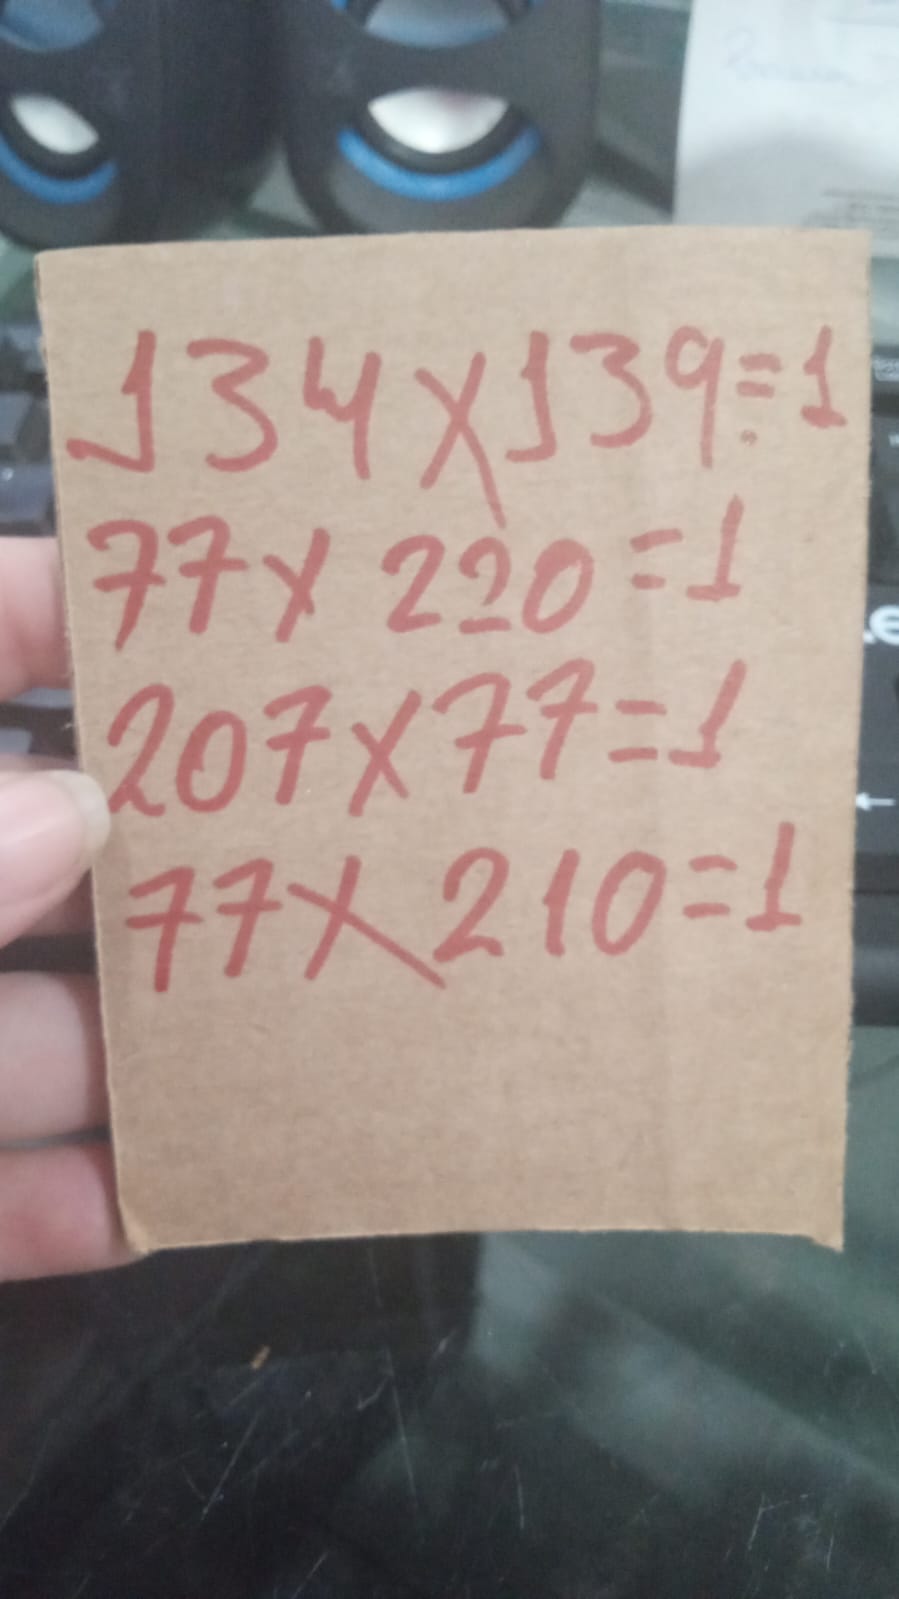 134x139=1
77x 220=1
207x77=1
77x210=1